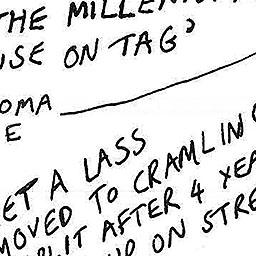 THE MILLENI
USE ON TAG?
OMA
E
ET A LASS
MOVED TO CRAMLING
LIT AFTER 4 YEA
UP ON STRE